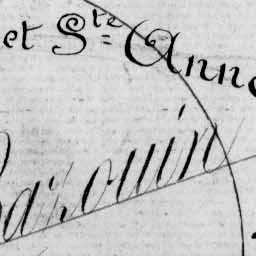 et Ste Anne
Bazouin